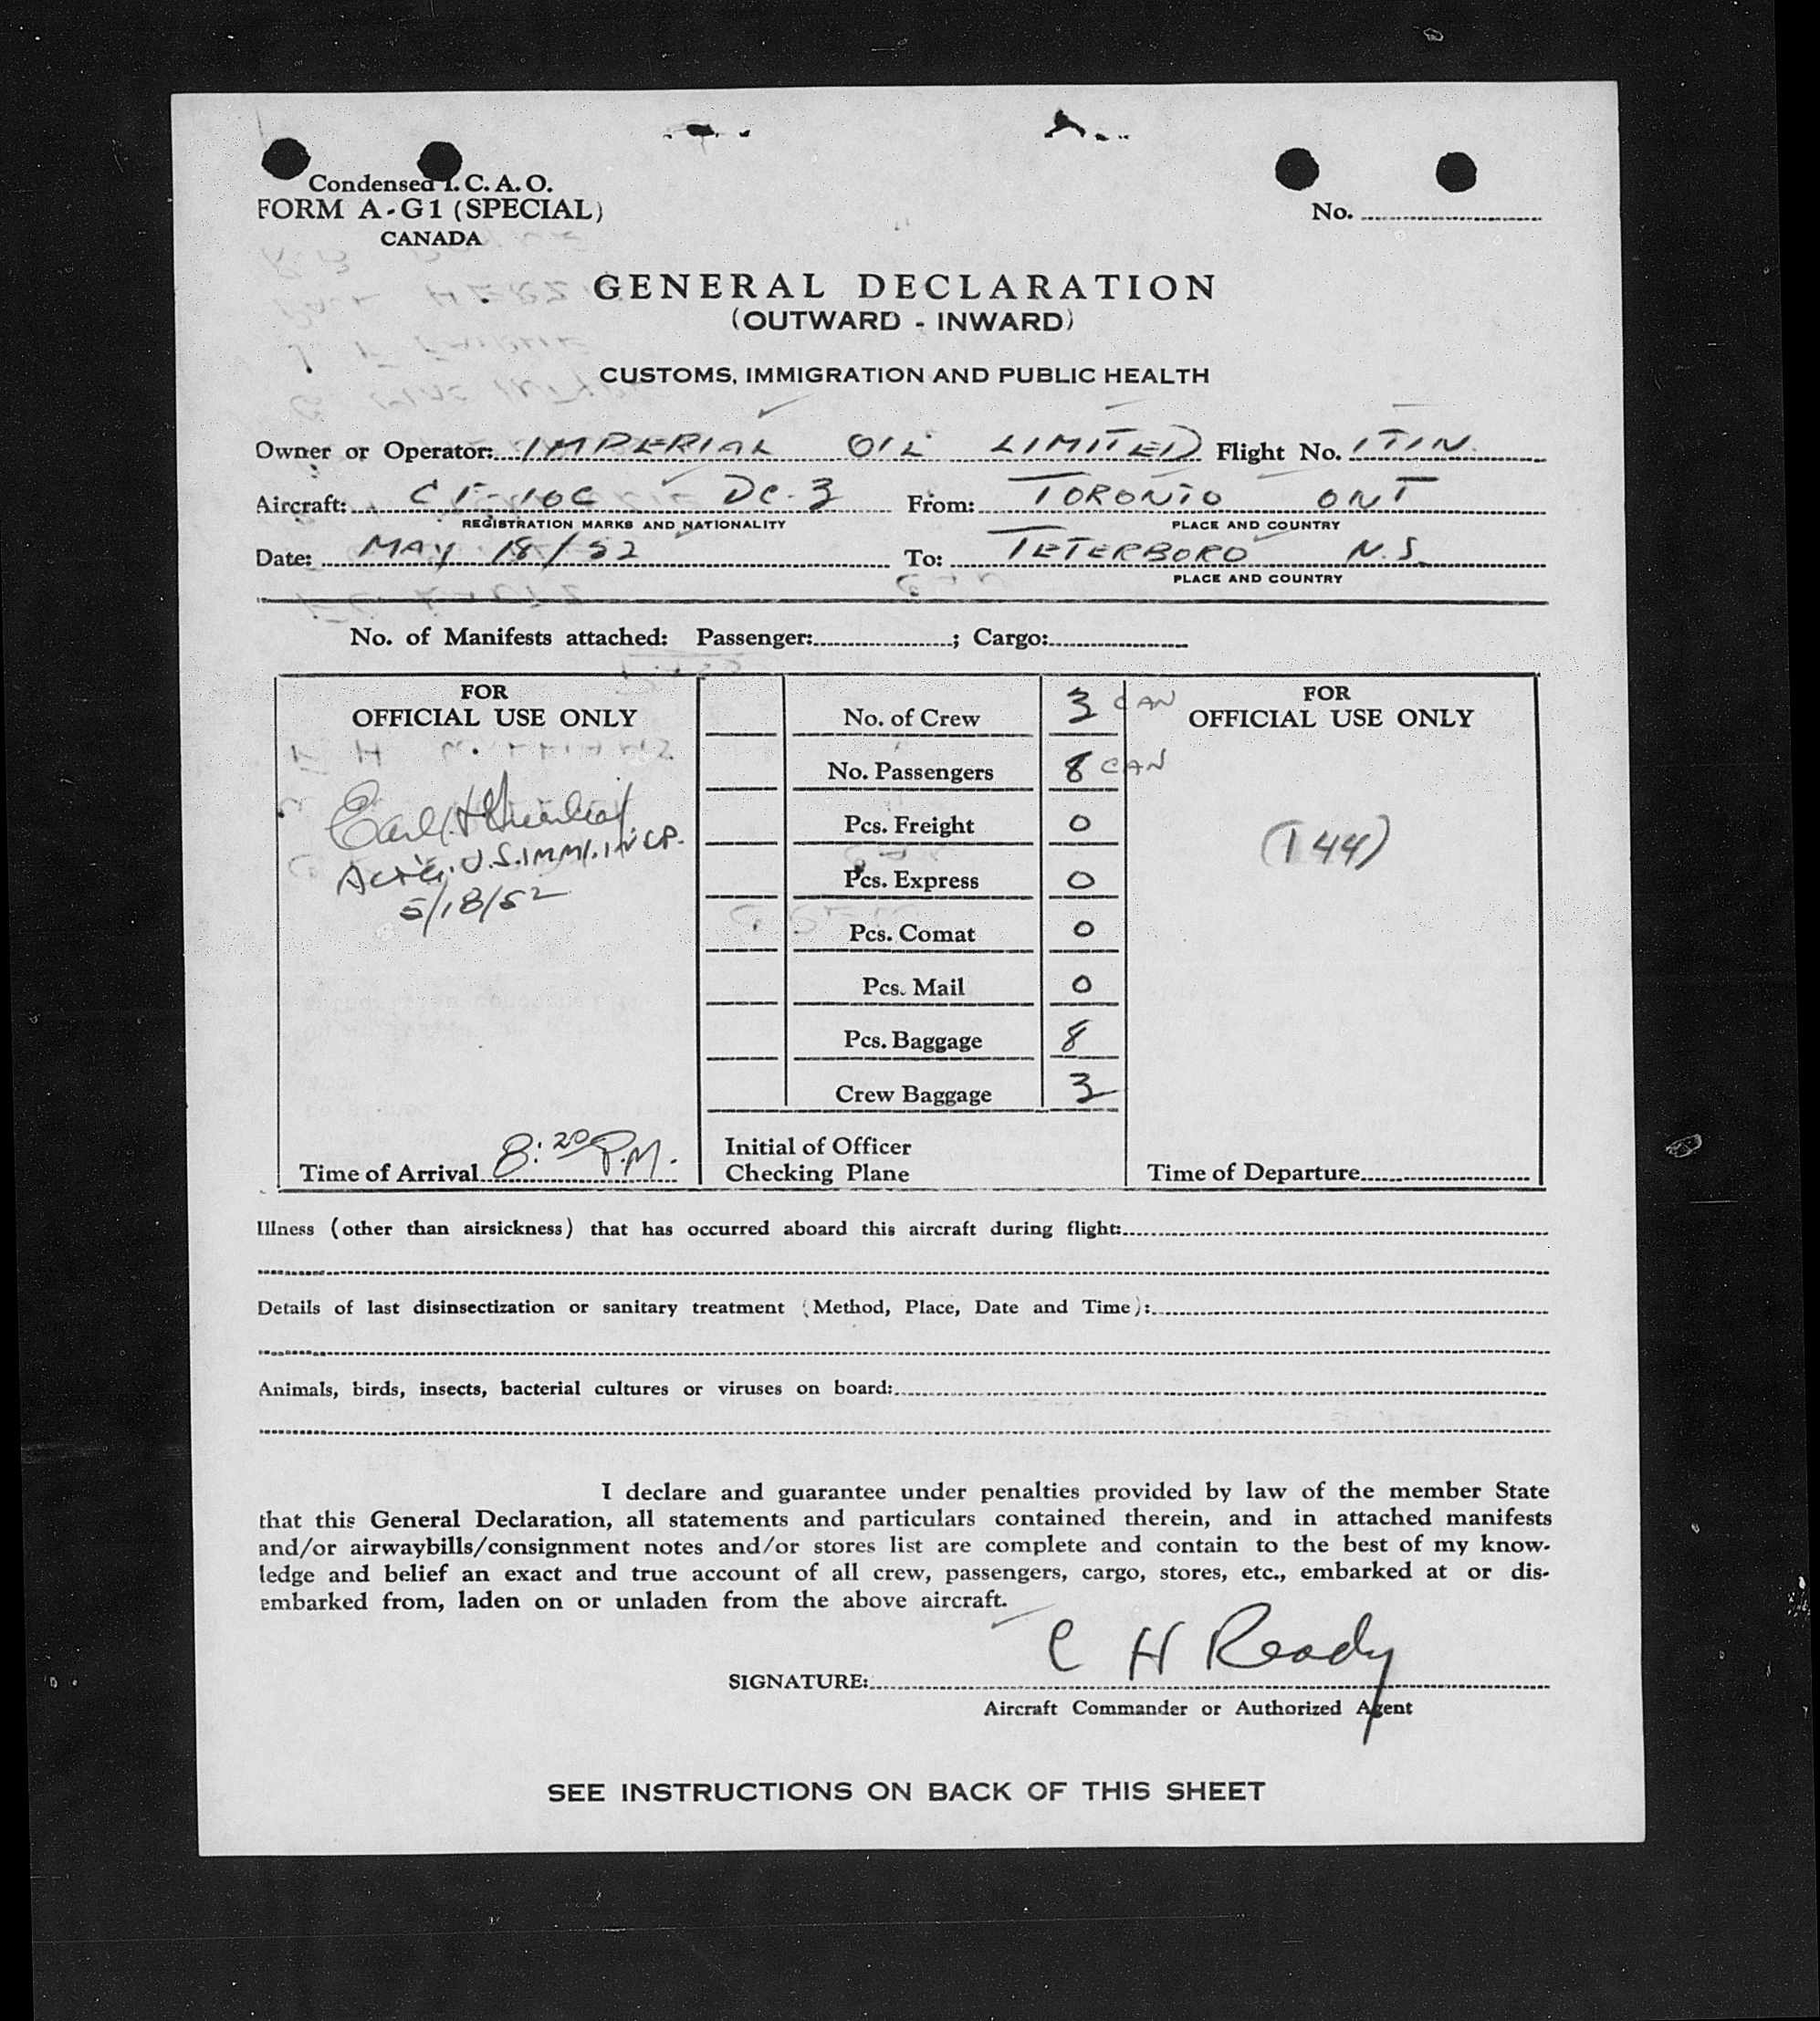 Condensed I. C. A. O.
FORM A-G1 (SPECIAL)
CANADA
No.
GENERAL DECLARATION
(OUTWARD - INWARD)
CUSTOMS, IMMIGRATION AND PUBLIC HEALTH
Owner or Operator: IMPERIAL OIL LIMITED Flight No. ITIN
Aircraft: CF-IOC DC-3 From: TORONTO ONT
REGISTRATION MARKS AND NATIONALITY PLACE AND COUNTRY
Date: MAY 18/52 To: TETERBORO N.J.
PLACE AND COUNTRY
No. of Manifests attached: Passenger: ; Cargo:
FOR
OFFICIAL USE ONLY
Earl H.
U.S. IMMI. INSP.
5/18/52
Time of Arrival 8:20 P.M.
No. of Crew 3 CAN
No. Passengers 8 CAN
Pcs. Freight 0
Pcs. Express 0
Pcs. Comat 0
Pcs. Mail 0
Pcs. Baggage 8
Crew Baggage 3
Initial of Officer
Checking Plane
FOR
OFFICIAL USE ONLY
(144)
Time of Departure
Illness (other than airsickness) that has occurred aboard this aircraft during flight:
Details of last disinsectization or sanitary treatment (Method, Place, Date and Time):
Animals, birds, insects, bacterial cultures or viruses on board:
I declare and guarantee under penalties provided by law of the member State
that this General Declaration, all statements and particulars contained therein, and in attached manifests
and/or airwaybills/consignment notes and/or stores list are complete and contain to the best of my know-
ledge and belief an exact and true account of all crew, passengers, cargo, stores, etc., embarked at or dis-
embarked from, laden on or unladen from the above aircraft.
SIGNATURE: C H Ready
Aircraft Commander or Authorized Agent
SEE INSTRUCTIONS ON BACK OF THIS SHEET